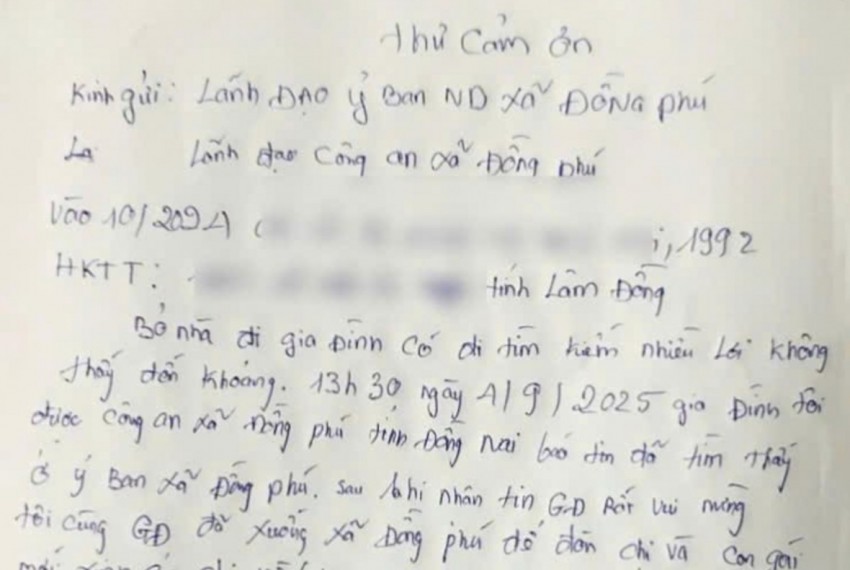 thư cảm ơn
Kính gửi: Lãnh ĐẠO ỷ Ban ND xã ĐỒNG phú
Lãnh đạo công an xã Đồng phú
Vào 10/2024 (
i, 1992
HKTT:
tỉnh Lâm Đồng
Bỏ nhà đi gia Đình có đi tìm kiếm nhiều Lơi không
thấy đến khoảng. 13h 30 ngày 1/9/2025 gia Đình tôi
được công an xã Đồng phú tỉnh Đồng Nai báo tin đã tìm thấy
ở ỷ Ban xã Đồng phú. sau khi nhân tin GĐ Rất vui mừng
tôi cùng GĐ đã xuống xã Đồng phú để đón chị và con gái